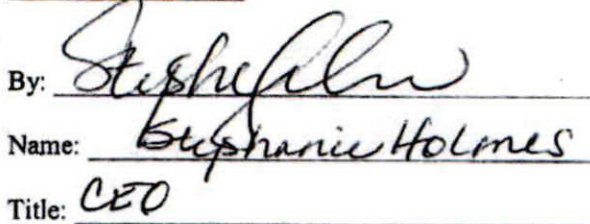 By:
Name: Stephanie Holmes
Title: CEO